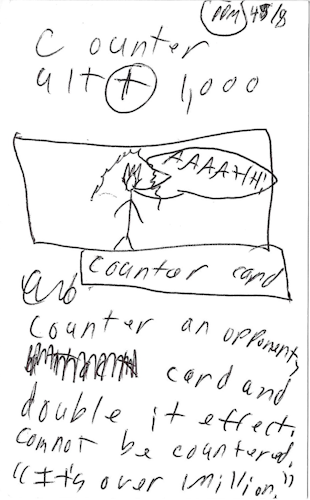 Counter
alt + 1,000
AAAAHH!
Counter card
Counter an opponents
card and
double it effect.
Comnot be countered.
"It's over 1 million."